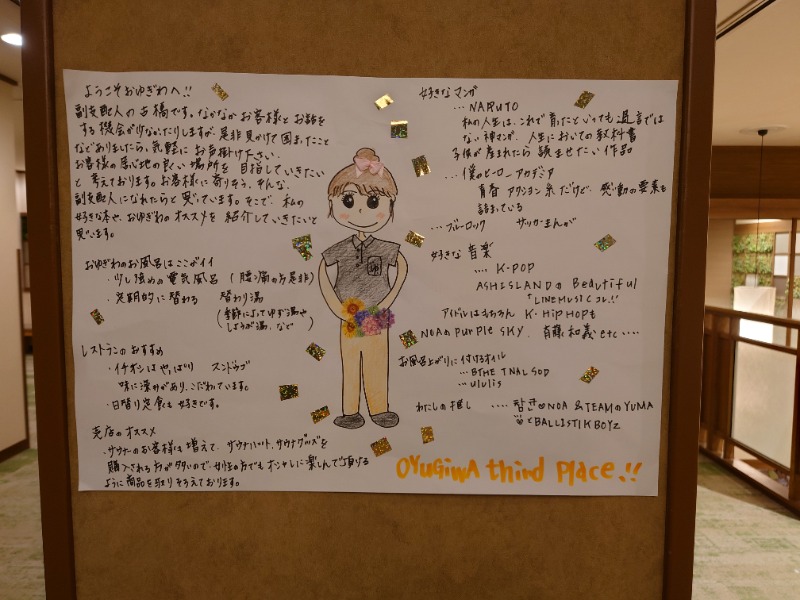 ようこそおゆぎわへ!!
副支配人の古橋です。なかなかお客様とお話を
する機会が少なかったりしますが是非見かけて困まったこと
などありましたら、気軽にお声掛け下さい。
お客様の居心地の良い場所を目指していきたい
と考えております。お客様に寄りそう、そんな、
副支配人になれたらと思っています。そこで、私の
好きな本や、おゆぎわのオススメを紹介していきたいと
思います。
おゆぎわのお風呂はここがイイ
・少し強めの電気風呂 (腰痛の方是非)
・定期的に替わる 替わり湯
(季節によってゆず湯や
しょうが湯、など)
レストランのおすすめ
・イチオシはやっぱり スンドゥブ
味に深みがあり、こだわっています。
・日替り定食も好きです。
売店のオススメ
・サウナーのお客様も増えて、サウナハット、サウナグッズを
購入される方が多いので、女性の方でもオシャレに楽しんで頂ける
ように商品を取りそろえております。
好きなマンガ
… NARUTO
私の人生は、これで育ったといっても過言では
ない神マンガ、人生においての教科書
子供が産まれたら読ませたい作品
… 僕のヒーローアカデミア
青春アクション系だけど、感動の要素も
詰まっている
… ブルーロック サッカーまんが
好きな音楽
.... K-POP
ASH ISLANDの Beautiful
「LINE MUSICコレ!!
アイドルはもちろん K-HIPHOPも
NOAのpurple SKY. 斉藤和義 etc ....
お風呂上がりに付けるオイル
… &THE TNAL SOD
… ululis
わたしの推し .... ♡NOA &TEAMのYUMA
♡とBALLISTIK BOYZ
OYUGIWA third Place.!!